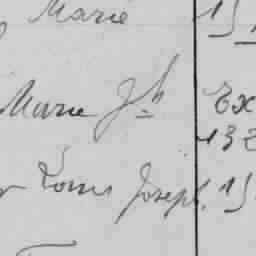 Marie
Marie Jh
Ex
132
Louis Joseph.